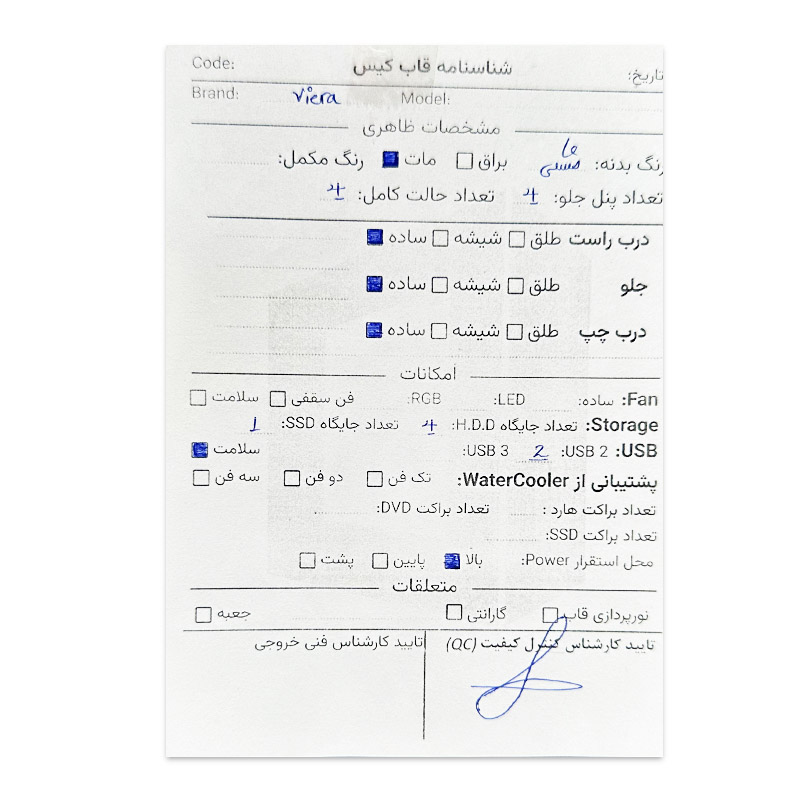 Code: شناسنامه قاب کیس تاریخ:
Brand: Viera Model:
مشخصات ظاهری
رنگ بدنه: مشکی براق مات رنگ مکمل:
تعداد پنل جلو: 4 تعداد حالت کامل: 4
درب راست طلق شیشه ساده
جلو طلق شیشه ساده
درب چپ طلق شیشه ساده
امکانات
Fan: ساده: LED: RGB: فن سقفی سلامت
Storage: تعداد جایگاه H.D.D: 4 تعداد جایگاه SSD: 1
USB: USB 2: 2 USB 3: سلامت
پشتیبانی از WaterCooler: تک فن دو فن سه فن
تعداد براکت هارد : تعداد براکت DVD:
تعداد براکت SSD:
محل استقرار Power: بالا پایین پشت
متعلقات
نورپردازی قاب گارانتی جعبه
تایید کارشناس کنترل کیفیت (QC) تایید کارشناس فنی خروجی